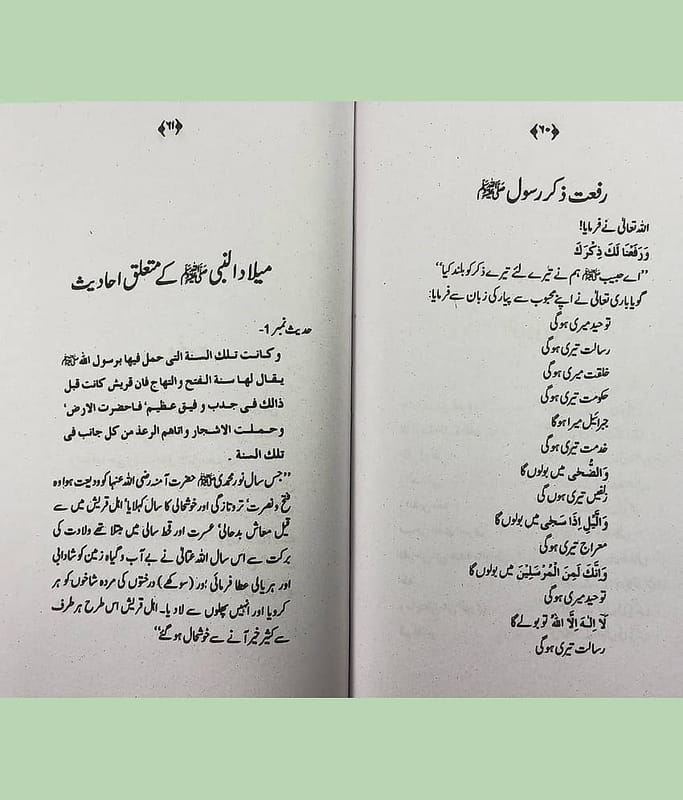 ﴿۶۰﴾
رفعت ذکر رسول ﷺ
اللہ تعالیٰ نے فرمایا!
وَرَفَعْنَا لَكَ ذِكْرَكَ
”اے حبیب ﷺ ہم نے تیرے لئے تیرے ذکر کو بلند کیا“
گویا باری تعالیٰ نے اپنے محبوب سے پیار کی زبان سے فرمایا:
توحید میری ہوگی
رسالت تیری ہوگی
خلقت میری ہوگی
حکومت تیری ہوگی
جبرائیل میرا ہوگا
خدمت تیری ہوگی
وَالضُّحٰی میں بولوں گا
زلفیں تیری ہوں گی
وَالَّيْلِ اِذَا سَجٰی میں بولوں گا
معراج تیری ہوگی
وَاِنَّكَ لَمِنَ الْمُرْسَلِيْنَ میں بولوں گا
توحید میری ہوگی
لَآ اِلٰهَ اِلَّا اللهُ تو بولے گا
رسالت تیری ہوگی
﴿۶۱﴾
میلاد النبی ﷺ کے متعلق احادیث
حدیث نمبر 1-
وكانت تلك السنة التى حمل فيها برسول الله ﷺ
يقال لها سنة الفتح والتهاج فان قريش كانت قبل
ذالك فى جدب و فيق عظيم' فاحضرت الارض'
وحملت الاشجار واتاهم الرعذ من كل جانب فى
تلك السنة .
”جس سال نور محمدی ﷺ حضرت آمنہ رضی اللہ عنہا کو ودیعت ہوا وہ
فتح و نصرت' تروتازگی اور خوشحالی کا سال کہلایا' اہل قریش میں سے
قبل معاشی بدحالی' عسرت اور قحط سالی میں مبتلا تھے ولادت کی
برکت سے اس سال اللہ تعالیٰ نے بے آب و گیاہ زمین کو شادابی
اور ہریالی عطا فرمائی' اور (سوکھے) درختوں کی مردہ شاخوں کو ہر
کر دیا اور انہیں پھلوں سے لاد دیا۔ اہل قریش اس طرح ہر طرف
سے کثیر خیر آنے سے خوشحال ہو گئے“